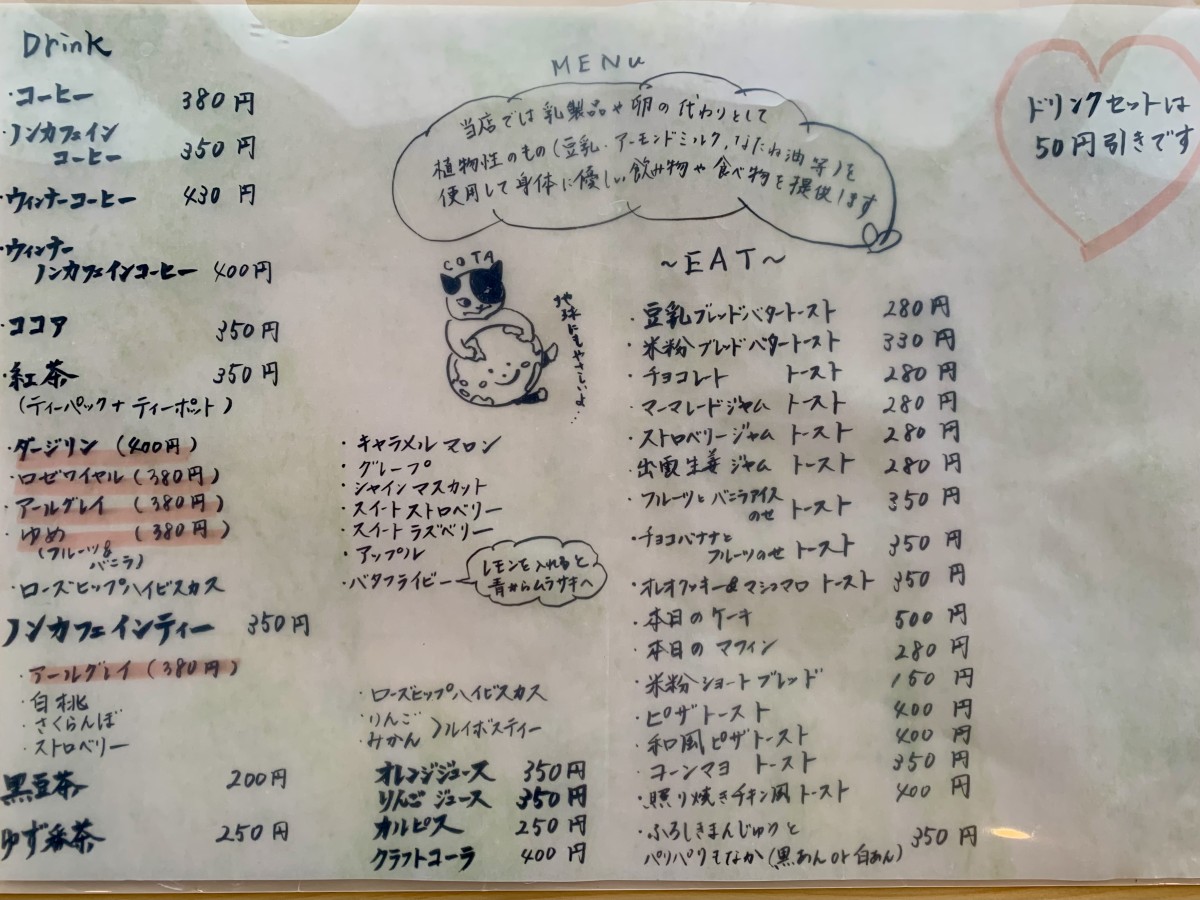 Drink
・コーヒー 380円
・ノンカフェイン
コーヒー 350円
・ウィンナーコーヒー 430円
・ウィンナー
ノンカフェインコーヒー 400円
・ココア 350円
・紅茶 350円
(ティーパック+ティーポット)
・ダージリン (400円)
・ロゼワイヤル (380円)
・アールグレイ (380円)
・ゆめ (380円)
(フルーツ&
バニラ)
・ローズヒップハイビスカス
・キャラメルマロン
・グレープ
・シャインマスカット
・スイートストロベリー
・スイートラズベリー
・アップル
・バタフライピー
レモンを入れると
青からムラサキへ
ノンカフェインティー 350円
・アールグレイ (380円)
・白桃
・さくらんぼ
・ストロベリー
・ローズヒップハイビスカス
・りんご
・みかん 〉ルイボスティー
黒豆茶 200円
ゆず番茶 250円
オレンジジュース 350円
りんごジュース 350円
カルピス 250円
クラフトコーラ 400円
MENU
当店では乳製品や卵の代わりとして
植物性のもの(豆乳・アーモンドミルク,なたね油等)を
使用して身体に優しい飲み物や食べ物を提供します
COTA
地球にもやさしいよ…
ドリンクセットは
50円引きです
~EAT~
・豆乳ブレッドバタートースト 280円
・米粉ブレッドバタートースト 330円
・チョコレート トースト 280円
・マーマレードジャム トースト 280円
・ストロベリージャム トースト 280円
・出雲生姜ジャム トースト 280円
・フルーツとバニラアイス
のせ トースト 350円
・チョコバナナと
フルーツのせ トースト 350円
・オレオクッキー&マシュマロ トースト 350円
・本日のケーキ 500円
・本日のマフィン 280円
・米粉ショートブレッド 150円
・ピザトースト 400円
・和風ピザトースト 400円
・コーンマヨ トースト 350円
・照り焼きチキン風トースト 400円
・ふろしきまんじゅうと
パリパリもなか(黒あんor白あん) 350円